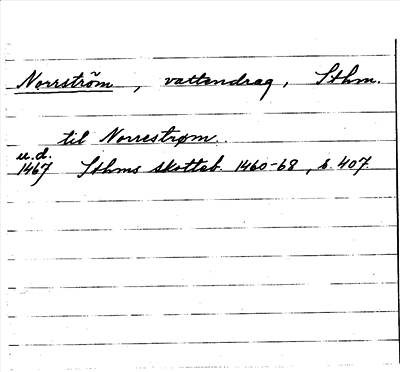 Norrström, vattendrag, Sthm.
til Norrestrøm.
u.d.
1467 Sthms skotteb. 1460-68, s. 407.